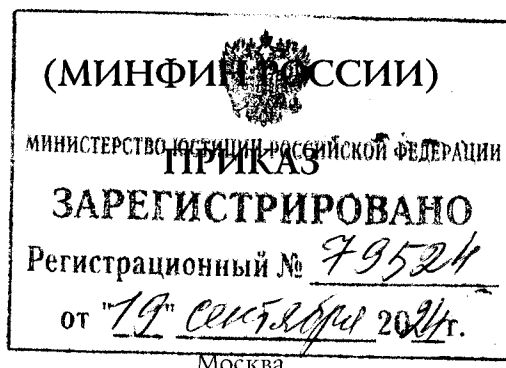 (МИНФИН РОССИИ)
МИНИСТЕРСТВО ЮСТИЦИИ РОССИЙСКОЙ ФЕДЕРАЦИИ
ПРИКАЗ
ЗАРЕГИСТРИРОВАНО
Регистрационный № 79524
от "19" сентября 2024г.
Москва